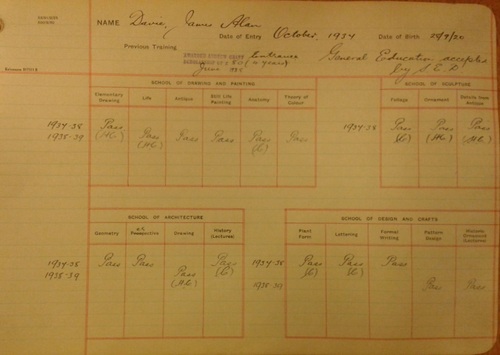 NAME Davie, James Alan
Date of Entry October, 1934 Date of Birth 28/9/20
Previous Training Entrance General Education accepted
(4 years) by S.E.D.
June
SCHOOL OF DRAWING AND PAINTING
Elementary Drawing Life Antique Still Life Painting Anatomy Theory of Colour
1937-38 Pass Pass Pass Pass Pass Pass
1938-39 (HC) (HC) (C)
SCHOOL OF SCULPTURE
Foliage Ornament Details from Antique
1937-38 Pass Pass Pass
(C) (HC) (HC)
SCHOOL OF ARCHITECTURE
Geometry Perspective Drawing History (Lectures)
1937-38 Pass Pass Pass
1938-39 Pass (C)
(HC)
SCHOOL OF DESIGN AND CRAFTS
Plant Form Lettering Formal Writing Pattern Design Historic Ornament (Lectures)
1937-38 Pass Pass Pass
(C) (C)
1938-39 Pass Pass